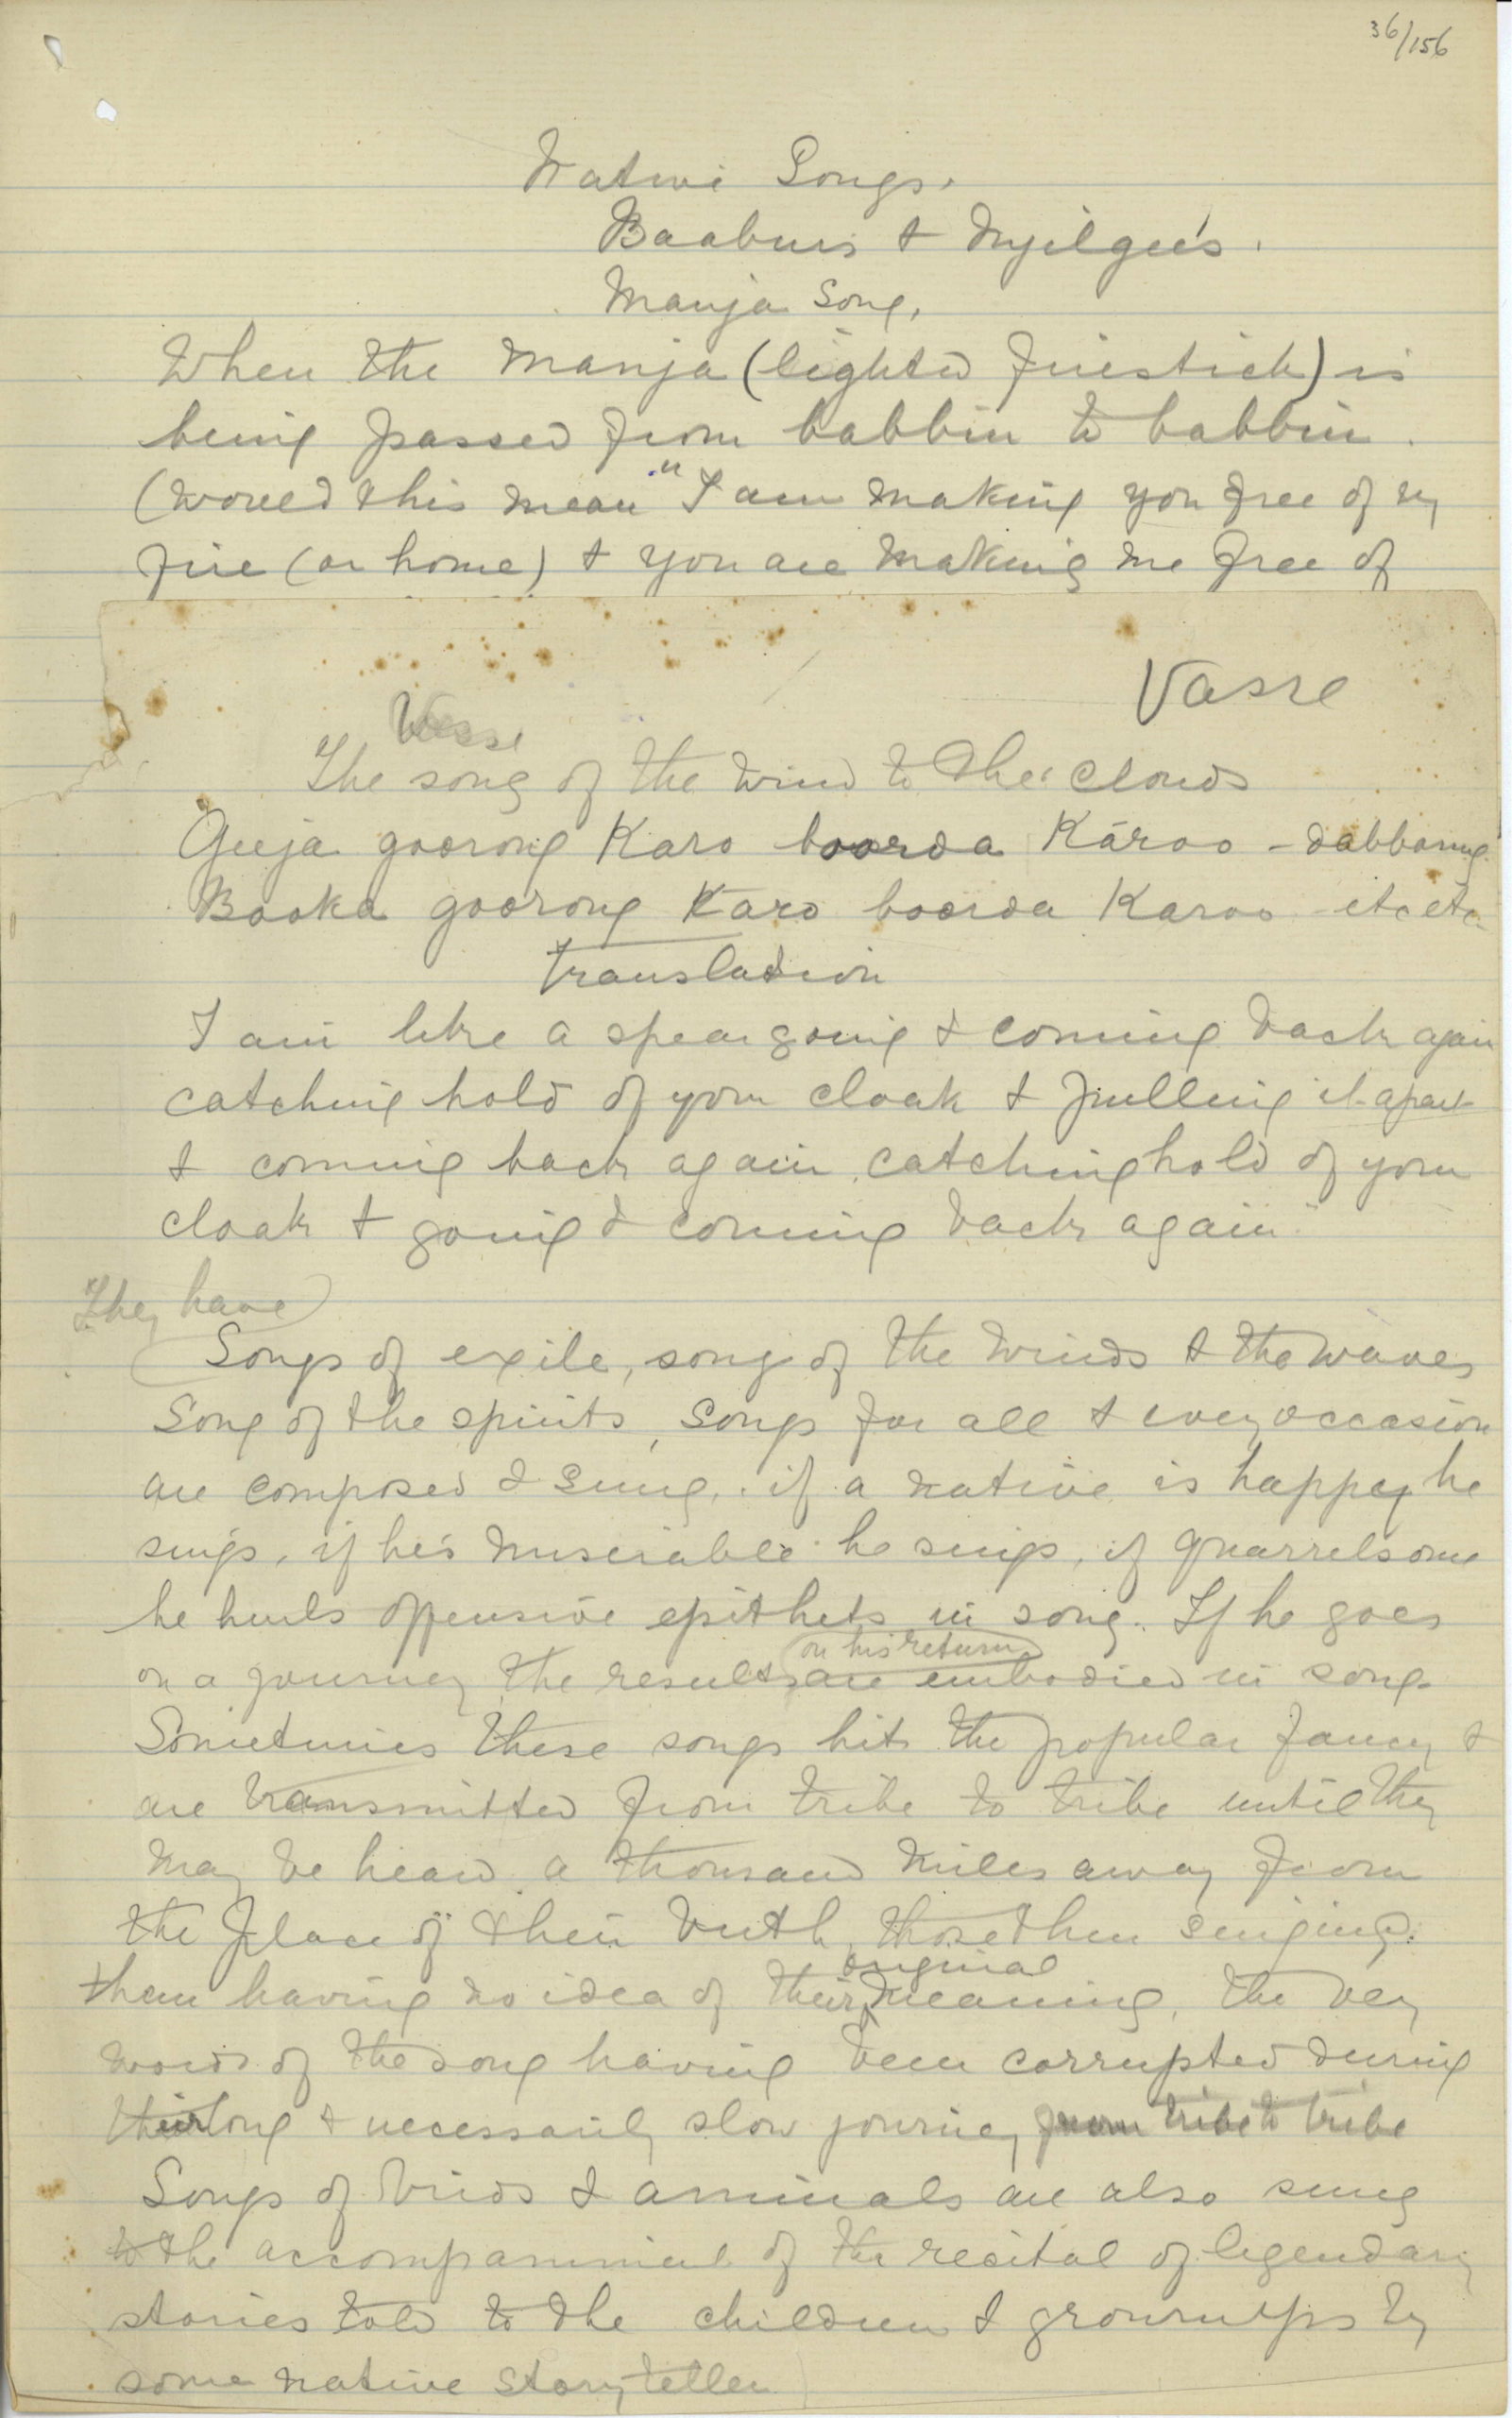 36/156
Native Songs.
Baaburs & Nyilgee's.
Manja Song.
When the manja (lighted firestick) is
being passed from babbin to babbin.
(Would this mean "I am making you free of my
fire (or home) & you are making me free of
Vasse
Vasse
The song of the wind to the clouds
Geeja goorong Karo boorda Karoo - dabbarung
Booka goorong Karo boorda Karoo etc etc
Translation
I am like a spear going & coming back again
catching hold of your cloak & pulling it apart
& coming back again, catching hold of your
cloak & going & coming back again"
They have
Songs of exile, song of the winds & the waves
Song of the spirits, songs for all & every occasion
are composed & sung, if a native is happy he
sings, if he's miserable he sings, if quarrelsome
he hurls offensive epithets in song. If he goes
on his return
on a journey the results are embodied in song.
Sometimes these songs hit the popular fancy &
are transmitted from tribe to tribe until they
may be heard a thousand miles away from
the place of their birth, those then singing
original
them having no idea of their meaning, the very
words of the song having been corrupted during
their long & necessarily slow journey from tribe to tribe
Songs of birds & animals are also sung
to the accompaniment of the recital of legendary
stories told to the children & grownups by
some native storyteller